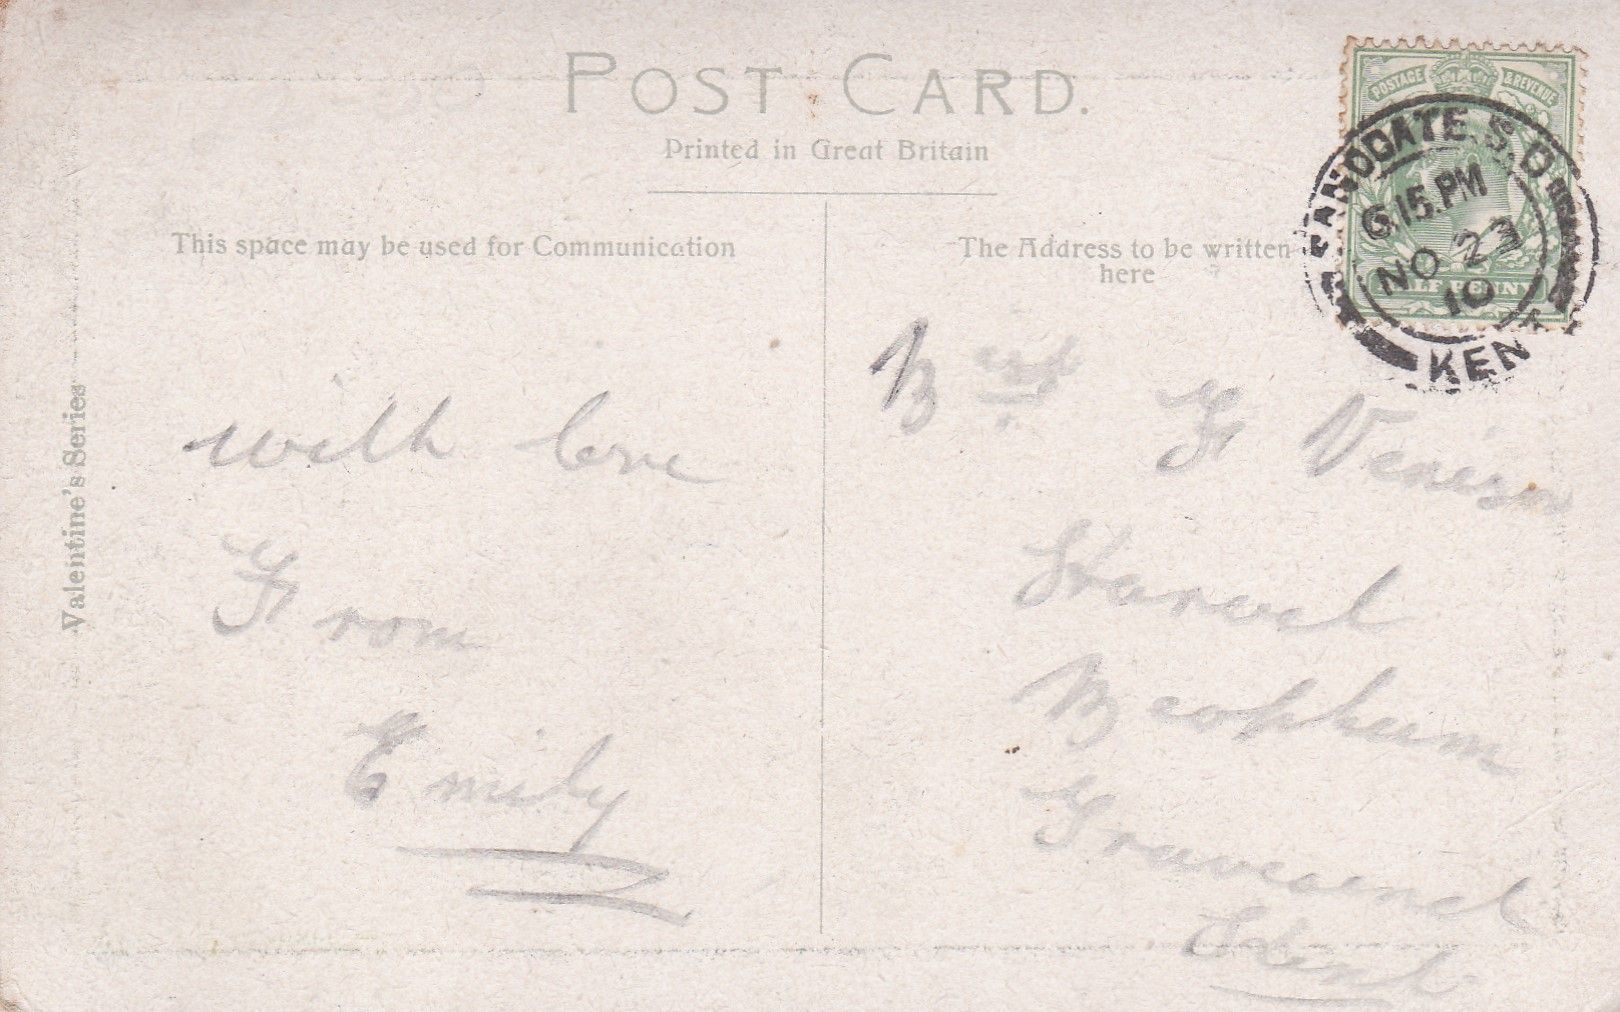 POST CARD.
Printed in Great Britain
This space may be used for Communication
The Address to be written
here
Valentine's Series
POSTAGE & REVENUE
HALF PENNY
S.O
6.15.PM
NO 23
10
KENT
with love
From
Emily
Mrs F
Meopham
Gravesend
Kent